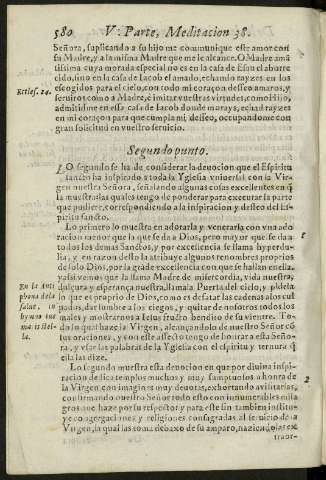 580 V. Parte, Meditacion 38.
Señora, suplicando a su hijo me communique este amor con su Madre, y a la misma Madre que me le alcance. O Madre amãtissima cuya morada especial no es en la casa de Esau el aborrecido, sino en la casa de Iacob el amado, echando rayzes en los
Eccles. 24.
escogidos para el cielo, con todo mi coraçon desseo amaros, y
seruiros como a Madre, è imitar vuestras virtudes, como Hijo,
admitidme en esta casa de Iacob donde morays, echad rayzes
en mi coraçon para que cumpla mi desseo, ocupandome con
gran solicitud en vuestro seruicio.
Segundo punto.
LO segundo se ha de considerar la deuocion que el Espiritu
santo ha inspirado a toda la Yglesia vniuersal con la Virgen nuestra Señora, señalando algunas cosas excelentes en q̃
la muestra, las quales tengo de ponderar para executar la parte
que pudiere, correspondiendo a la inspiracion y desseo del Espiritu sancto.
Lo primero lo muestra en adorarla y venerarla con vna adoracion menor que la que se da a Dios, pero mayor que se da a
1
todos los demas Sanctos, y por excelencia se llama hyperdulia, y en razon desto la atribuye algunos renombres proprios
de solo Dios, por la grade excelencia con que se hallan en ella,
y assi vemos que la llama Madre de misericordia, vida nuestra,
dulçura y esperança nuestra, llamala Puerta del cielo, y pidela
En la Antiphona de la salue, in hymno aue maris stella.
lo que es proprio de Dios, como es desatar las cadenas a los culpados, dar lumbre a los ciegos, y quitar de nosotros todos los
males y mostrarnos a Iesus fructo bendito de su vientre. Todo lo qual haze la Virgen, alcançandolo de nuestro Señor cõ
sus oraciones, y con este affecto tengo de honrar a esta Señora, y vsar las palabras de la Yglesia con el espiritu y ternura q̃
ella las dize.
Lo segundo muestra esta deuocion en que por diuina inspiracion dedica templos muchos y muy sumptuosos a honra de
2
la Virgen con imagines muy deuotas, exhortando a visitarlas,
confirmando nuestro Señor todo esto con innumerables milagros que haze por su respecto, y para este fin tambien instituye congregaciones y religiones consagradas al seruicio de la
Virgen, la qual las toma debaxo de su amparo, haziendolas extraor-